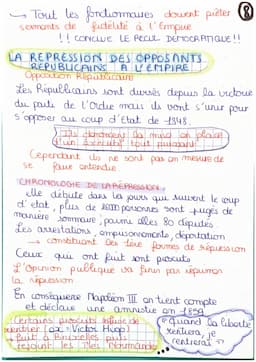 → Tout les fonctionnaires doivent prêter
serments de fidélité à l'Empire
!! CONCLUE LE RECUL DEMOCRATIQUE !!
8
LA REPRESSION DES OPPOSANTS
REPUBLICAINS A L'EMPIRE
Opposition Républicaine
Les Républicains sont divisés depuis la victoire
du parti de l'Ordre mais ils vont s'unir pour
s'opposer au coup d'Etat de 1848.
Ils dénoncent la mise en place
d'un Executif tout puissant
Cependant ils ne sont pas en mesure de
se faire entendre.
CHRONOLOGIE DE LA REPRESSION
elle débute dans les jours qui suivent le coup
d'état, plus de 2000 personnes sont jugés de
manière sommaire, parmi elles 80 députés.
Les arrestations, emprisonnements, déportation
→ constituent les 1ère formes de répression
Ceux qui ont fuit sont proscrits
L'opinion publique va finir par répugner
la répression
En conséquence Napoléon III en tient compte
et déclare une amnistie en 1859
Certains proscrits refuse de
rentrier (ex: Victor Hugo)
fuit à Bruxelles puis
rejoint les îles Normandes
"quand la liberté
rentrera, je
rentrerai"